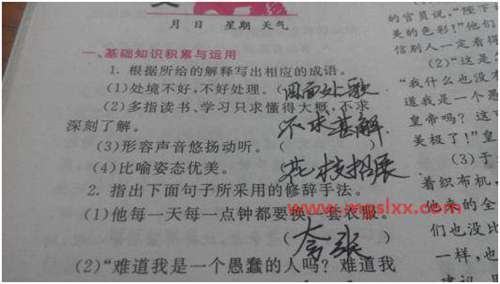 月 日 星期 天气
一、基础知识积累与运用
1. 根据所给的解释写出相应的成语。
(1)处境不好,不好处理。(四面处歌
(2)多指读书、学习只求懂得大概,不求
深刻了解。(不求甚解
(3)形容声音悠扬动听。(
(4)比喻姿态优美。(花枝招展
2. 指出下面句子所采用的修辞手法。
(1)他每一天每一点钟都要换一套衣服。
(夸张
(2)“难道我是一个愚蠢的人吗? 难道我
的官员说,“陛下
美的色彩!”他们
信别人一定看得
(2)“这是
“我什么也没
道我是一个愚
皇帝吗?
美极了!”皇
(3)于
着织布机,
他来的全
们也没比
一样,也